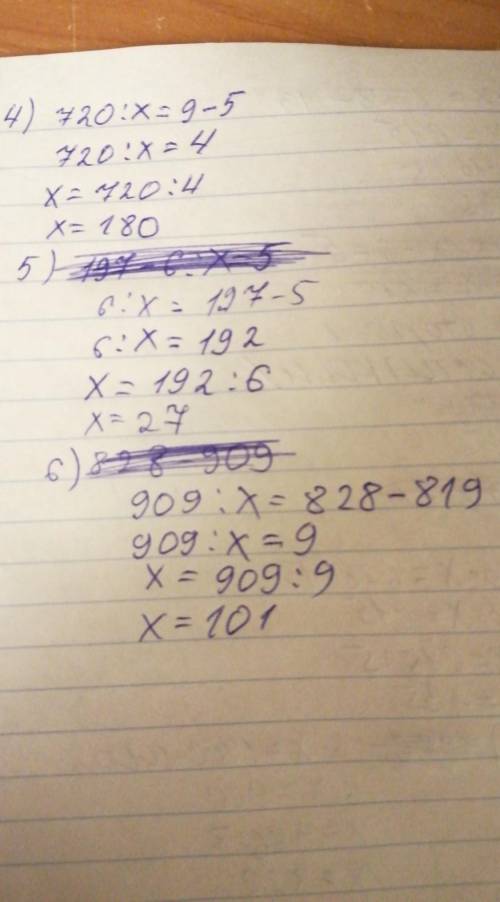 4) 720:x=9-5
720:x=4
x=720:4
x=180
5) 197-6:x-5
6:x=197-5
6:x=192
x=192:6
x=27
6) 828-909
909:x=828-819
909:x=9
x=909:9
x=101